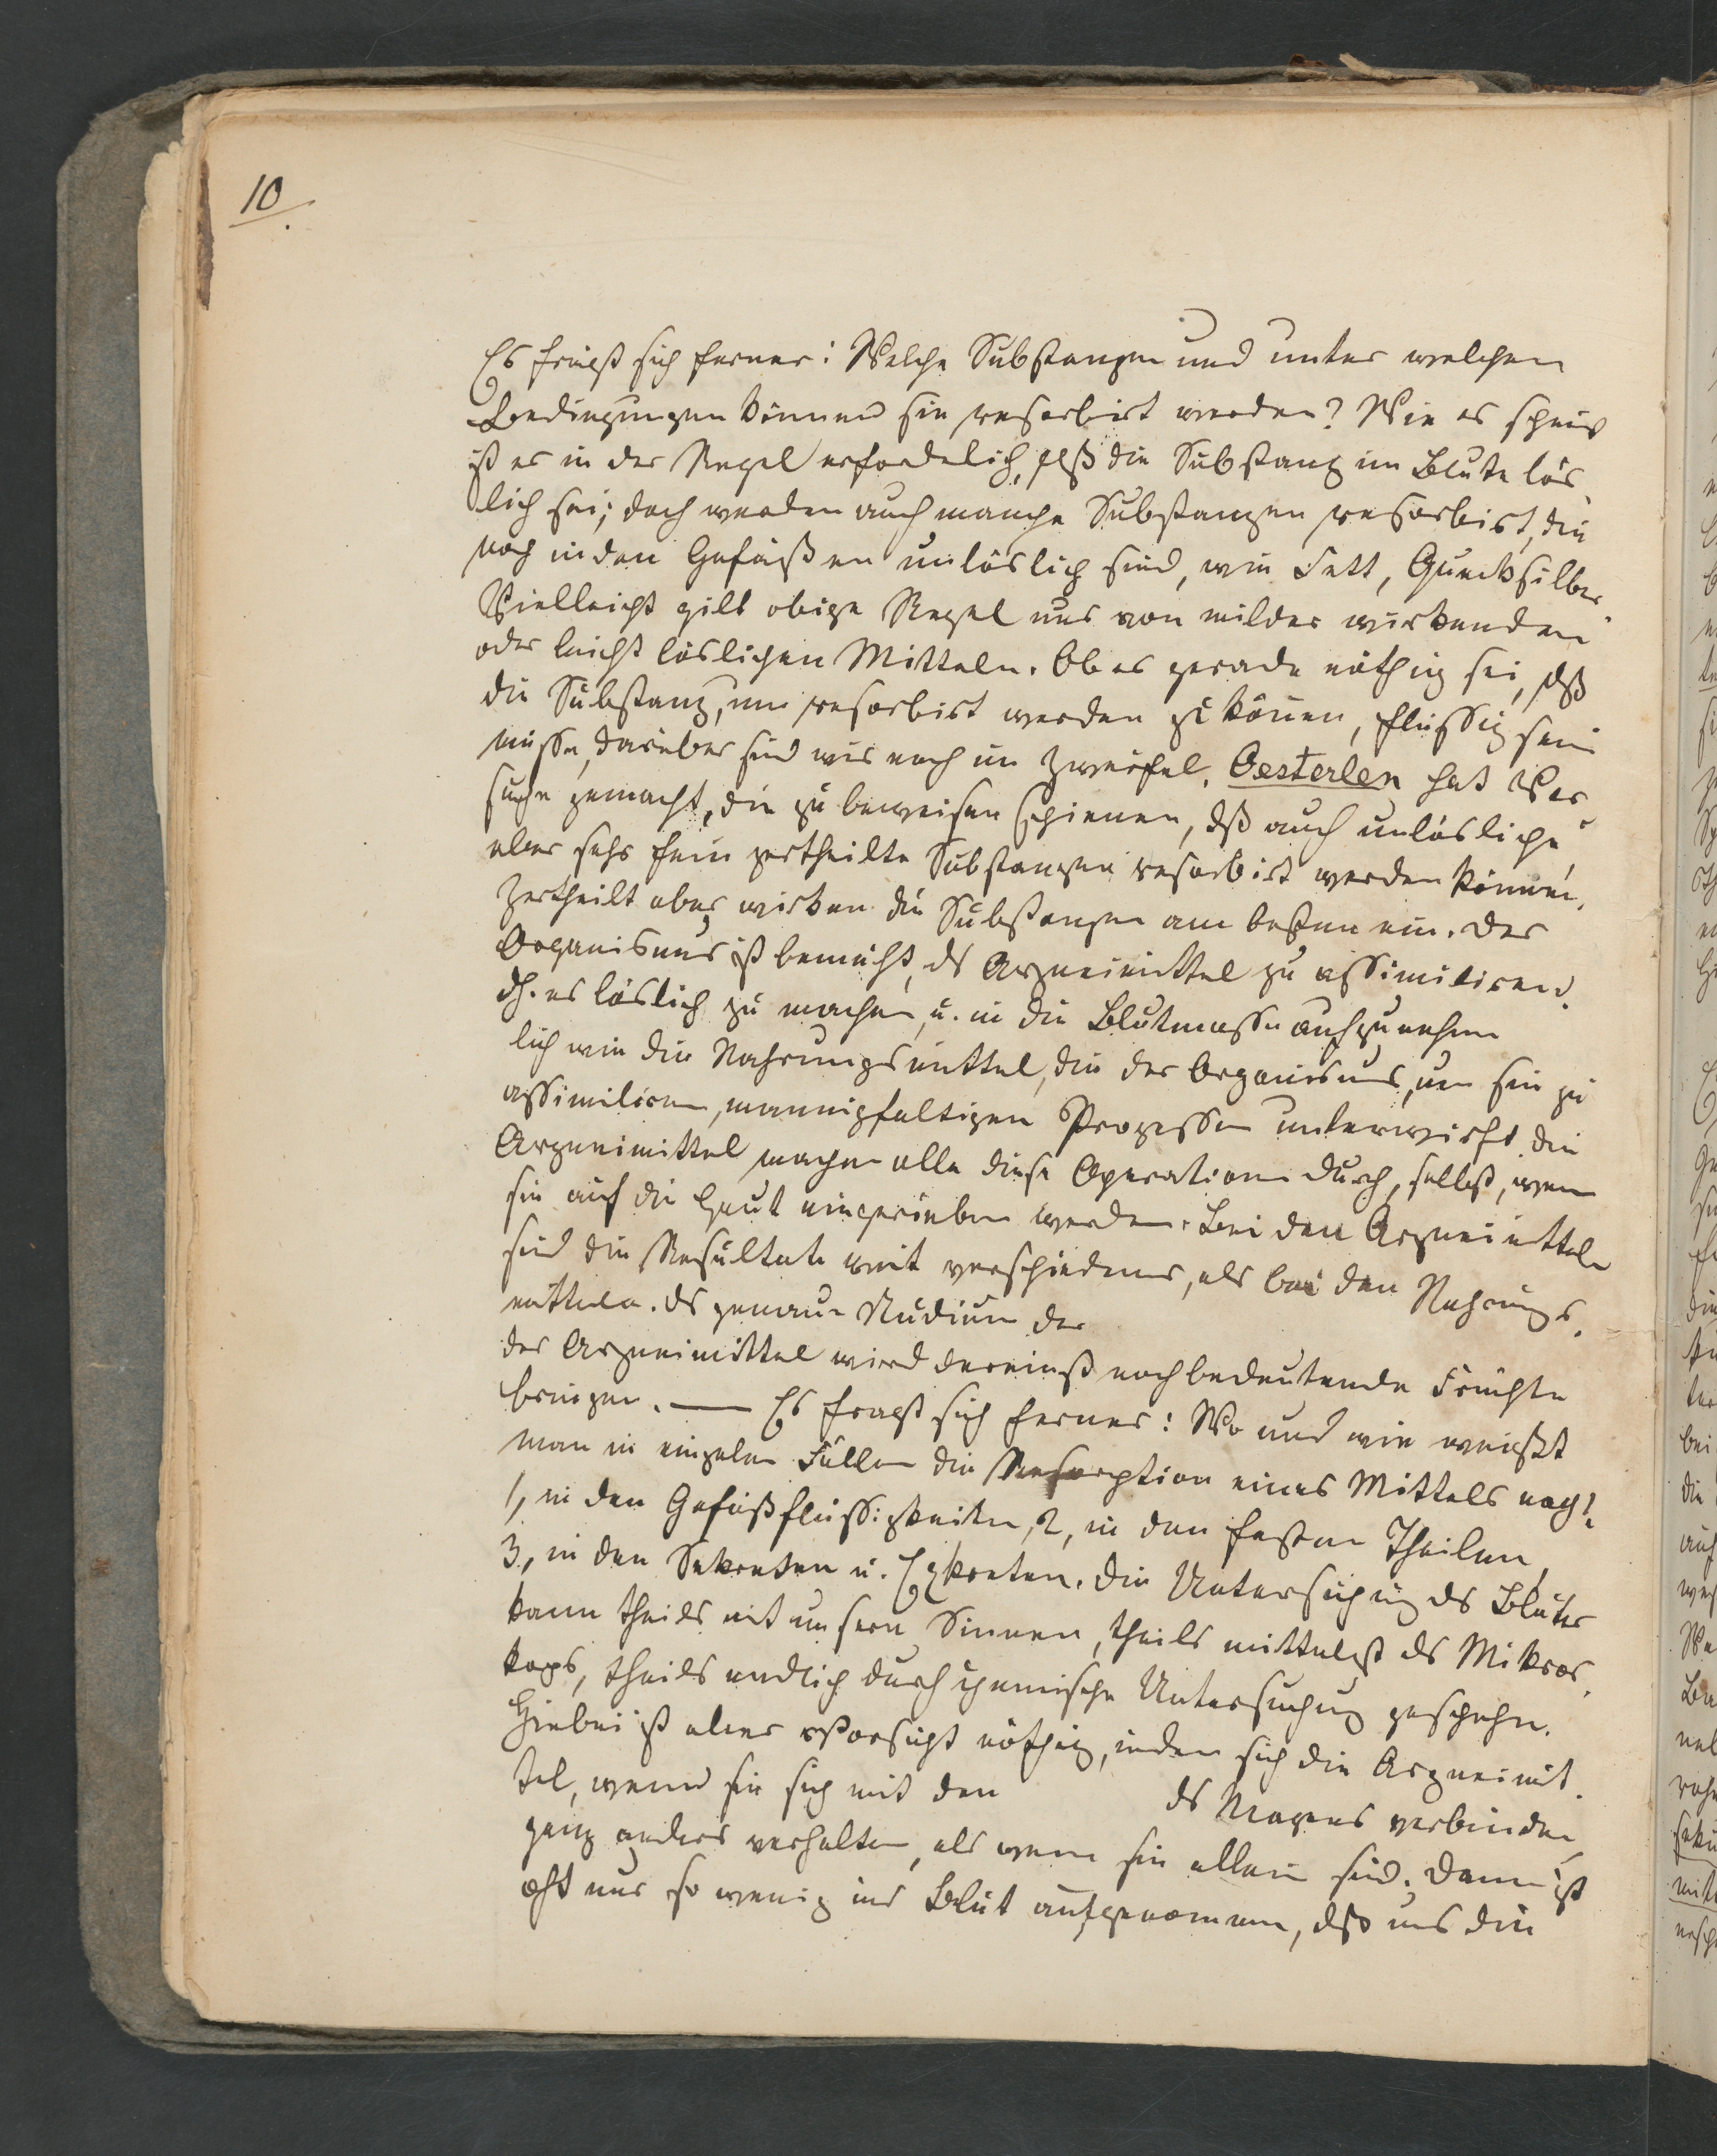 10.
Es frägt sich ferner: Welche Substanzen und unter welchen
Bedingungen können sie resorbirt werden? Wie es scheint
ist es in der Regel erforderlich, daß die Substanz im Blute lös
lich sei; doch werden auch manche Substanzen resorbirt, die
noch in den Gefäßen unlöslich sind, wie Fett, Quecksilber
Vielleicht gilt obige Regel nur von milder wirkenden
oder leicht löslichen Mitteln. Ob es gerade nöthig sei, daß
die Substanz, um resorbirt werden zu könen, flüssig sein
müsse, darüber sind wir noch im Zweifel. Oesterlen hat Ver
suche gemacht, die zu beweisen schienen, dß auch unlösliche
aber sehr fein zertheilte Substanzen resorbirt werden können.
Zertheilt aber wirken die Substanzen am besten ein. Der
Organismus ist bemüht, ds Arzneimittel zu assimiliren.
dh. es löslich zu machen, u. in die Blutmasse aufzunehmen
lich wie die Nahrungsmittel, die der Organismus, um sie zu
assimiliren, mannigfaltigen Prozessen unterwirft. Die
Arzneimittel machen alle diese Operationen durch, selbst, wenn
sie auf die Haut eingerieben werden. Bei den Arzneimitteln
sind die Resultate weit verschiedener, als bei den Nahrungs
mitteln. Ds genaue Studium der
der Arzneimittel wird dereinst noch bedeutende Früchte
bringen. — Es fragt sich ferner: Wo und wie weißt
man in einzelnen Fällen die Resorption eines Mittels nach?
1, in den Gefäßflüssigkeiten, 2, in den festen Theilen,
3, in den Sekreten u. Exkreten. Die Untersuchung ds Blutes
kann theils mit unsern Sinnen, theils mittelst ds Mikros
kops, theils endlich durch chemische Untersuchung geschehn.
Hiebei ist aber Vorsicht nöthig, indem sich die Arzneimit
tel, wenn sie sich mit den ds Magens verbinden,
ganz anders verhalten, als wenn sie allein sind. Dann ist
oft nur so wenig ins Blut aufgenommen, dß uns die